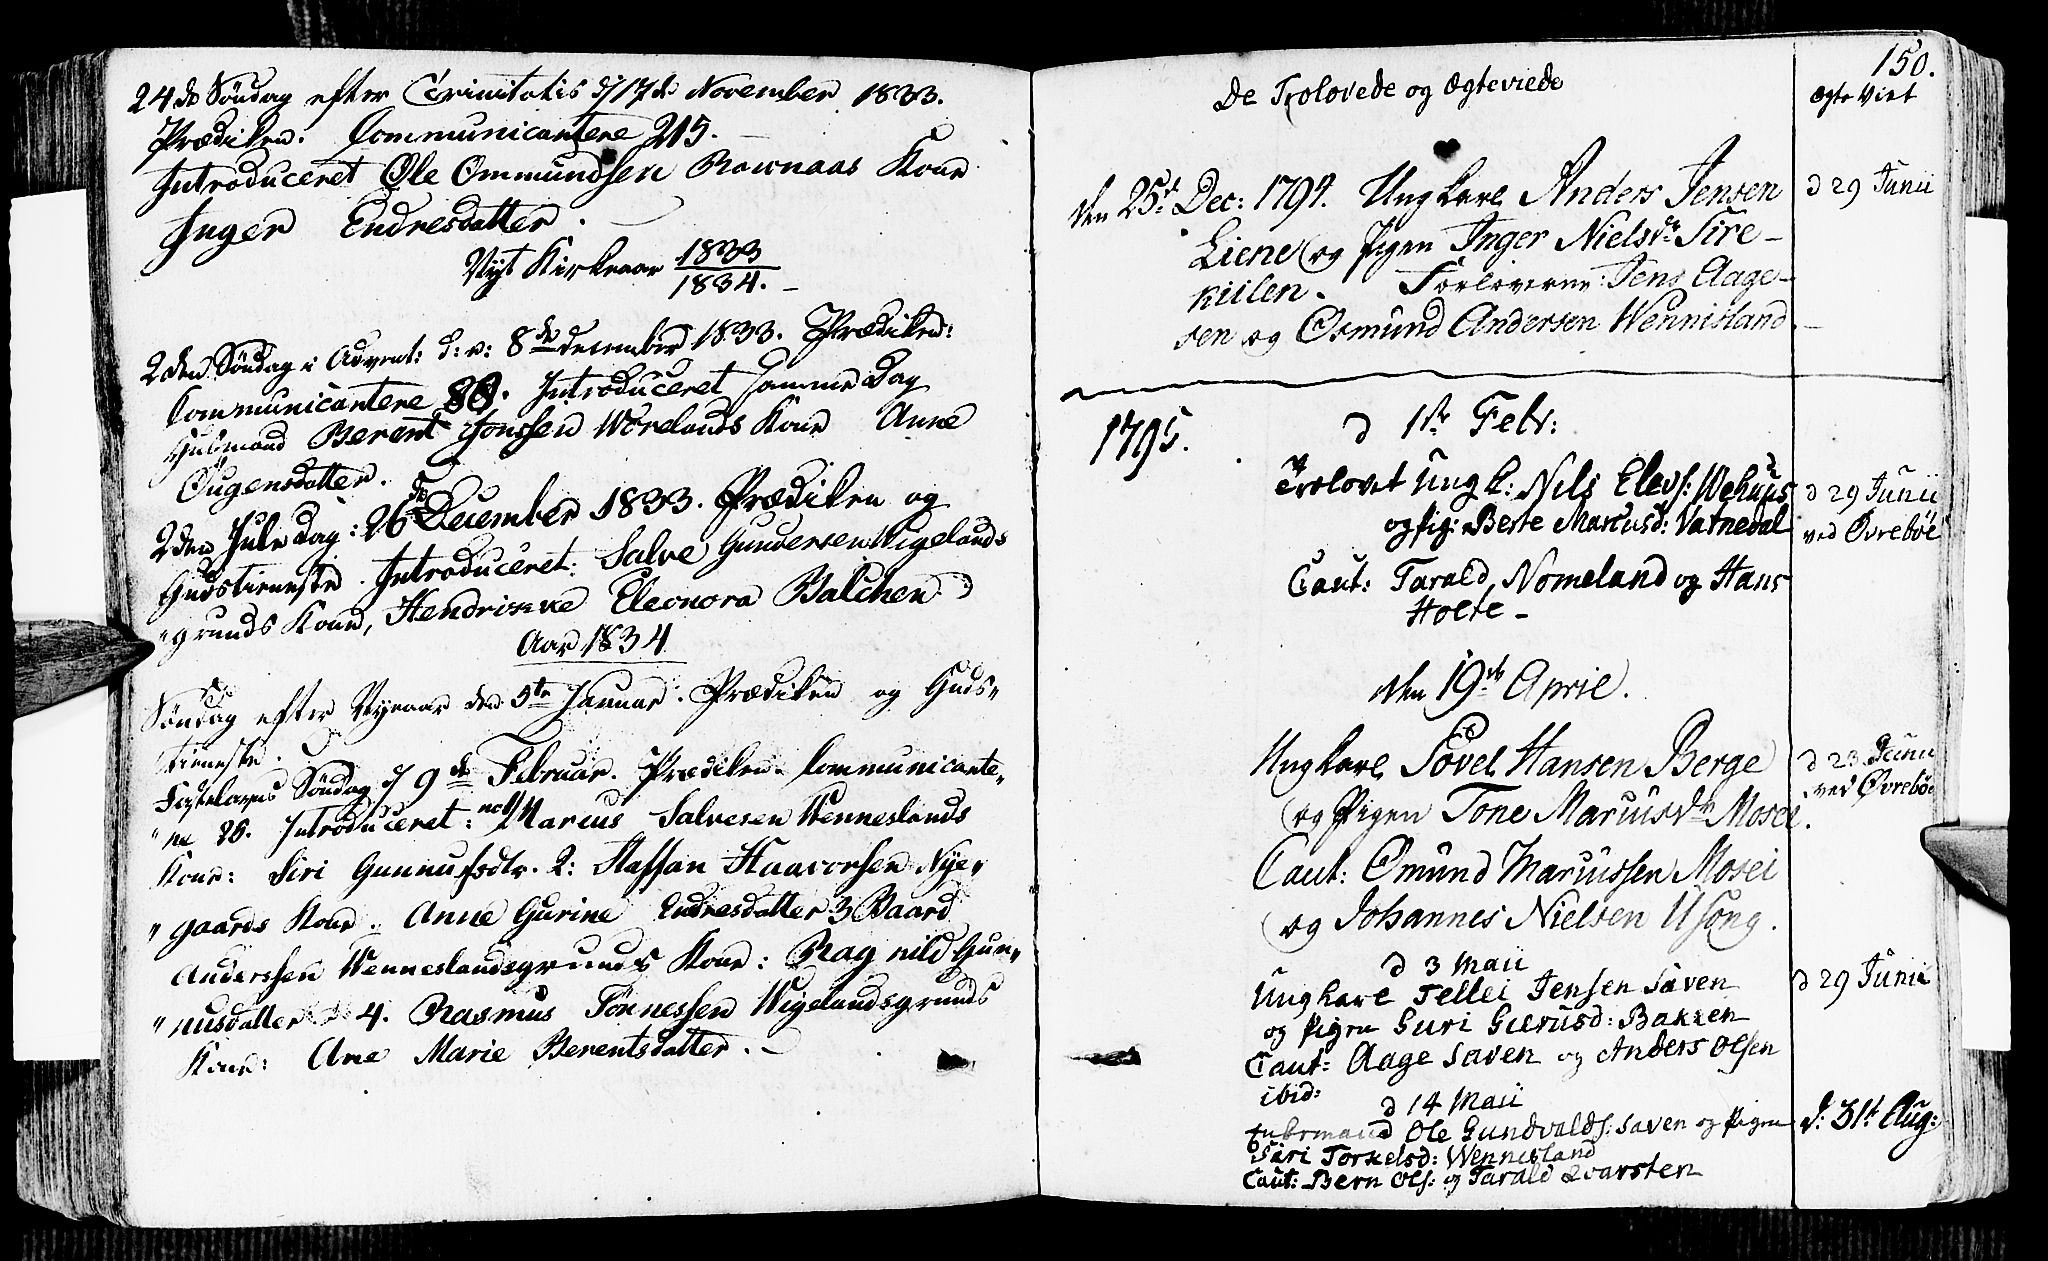 24de Söndag efter Trinitatis d 17de November 1833.
Prædiken. Communicantere 215.
Introduceret Ole Ommundsen Rownaas Kone
Inger Endresdatter.
Nyt Kirkeaar 1833
1834.
2den Söndag i Advent: d: 8de December 1833. Prædiken:
Communicantere 80. Introduceret samme Dag
Huusmand Berent Jonssen Wörelands Kone Anne
Öugensdatter.
2den Jule Dag: 26de December 1833. Prædiken og
Gudstieneste. Introduceret: Salve Gundersen Wigelands
"grunds Kone, Hendrikke Eleonora Balchen
Aar 1834
Söndag efter Nyeaar den 5te Januar. Prædiken og Guds"
tieneste.
Fastelavns Söndag d 9de Februar. Prædiken. Communicante"
"re 26. Introduceret: no 1 Marcus Salvesen Wenneslands
Kone: Siri Gunnufsdtr. 2: Staffan Haavorsen Nye"
"gaards Kone: Anne Gurine Endresdatter 3 Baard
Anderssen Wenneslandsgrunds Kone: Ragnild Gun"
"nusdatter 4. Rasmus Tönnessen Wigelandsgrunds
Kone: Ane Marie Berentsdatter.
150.
De Trolovede og Ægteviede
Ægte Viet
Den 25de Dec: 1794. Ungkarl Anders Jensen
d 29 Junii
Liene og Pigen Inger Nielsdr Tire-
kiilen. Forloverne: Jens Aage-
sen og Osmund Andersen Wennisland.
1795.
d 1ste Febr:
Trolovet Ungk: Nils Elevs: Wehuus
d 29 Junii
og pig: Berte Marcusd: Vatnedal
ved Øvreböe
Caut: Tarald Nomeland og Hans
Holte -
Den 19de April.
Ungkarl Povel Hansen Berge
d 23 Junii
og Pigen Tone Marcusdr Mosei.
ved Øvreböe
Caut: Omund Marcussen Mosei
og Johannes Nielsen Usong.
d 3 Maii
Ungkarl Tellei Jensen Saven
d 29 Junii
og Pigen Guri Gierusd: Bakken
Caut: Aage Saven og Anders Olsen
ibid:
d 14 Maii
Enkemand Ole Gundvalds: Saven og Pigen
d: 31t Aug:
Siri Torkelsd: Wennisland
Caut: Bern Ols: og Tarald Qvarsten